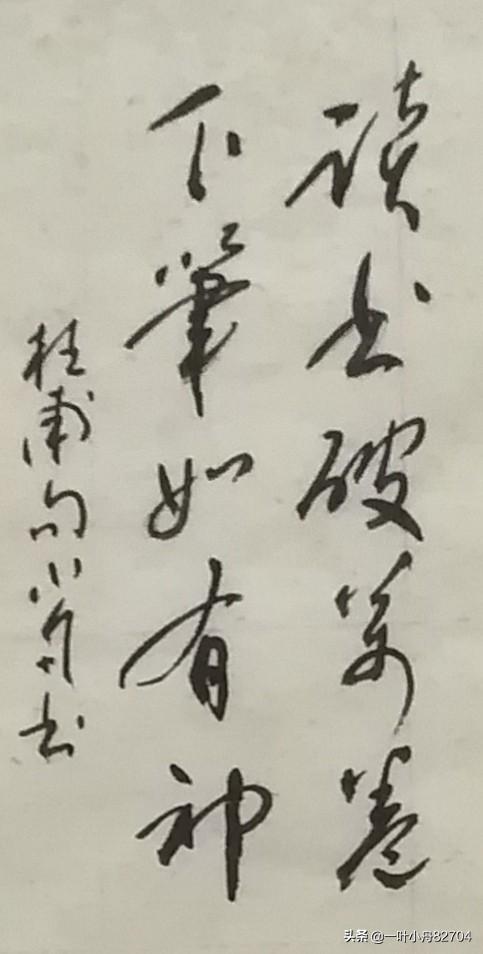 读书破萬卷
下筆如有神
杜甫句小舟书
头条 @一叶小舟82704